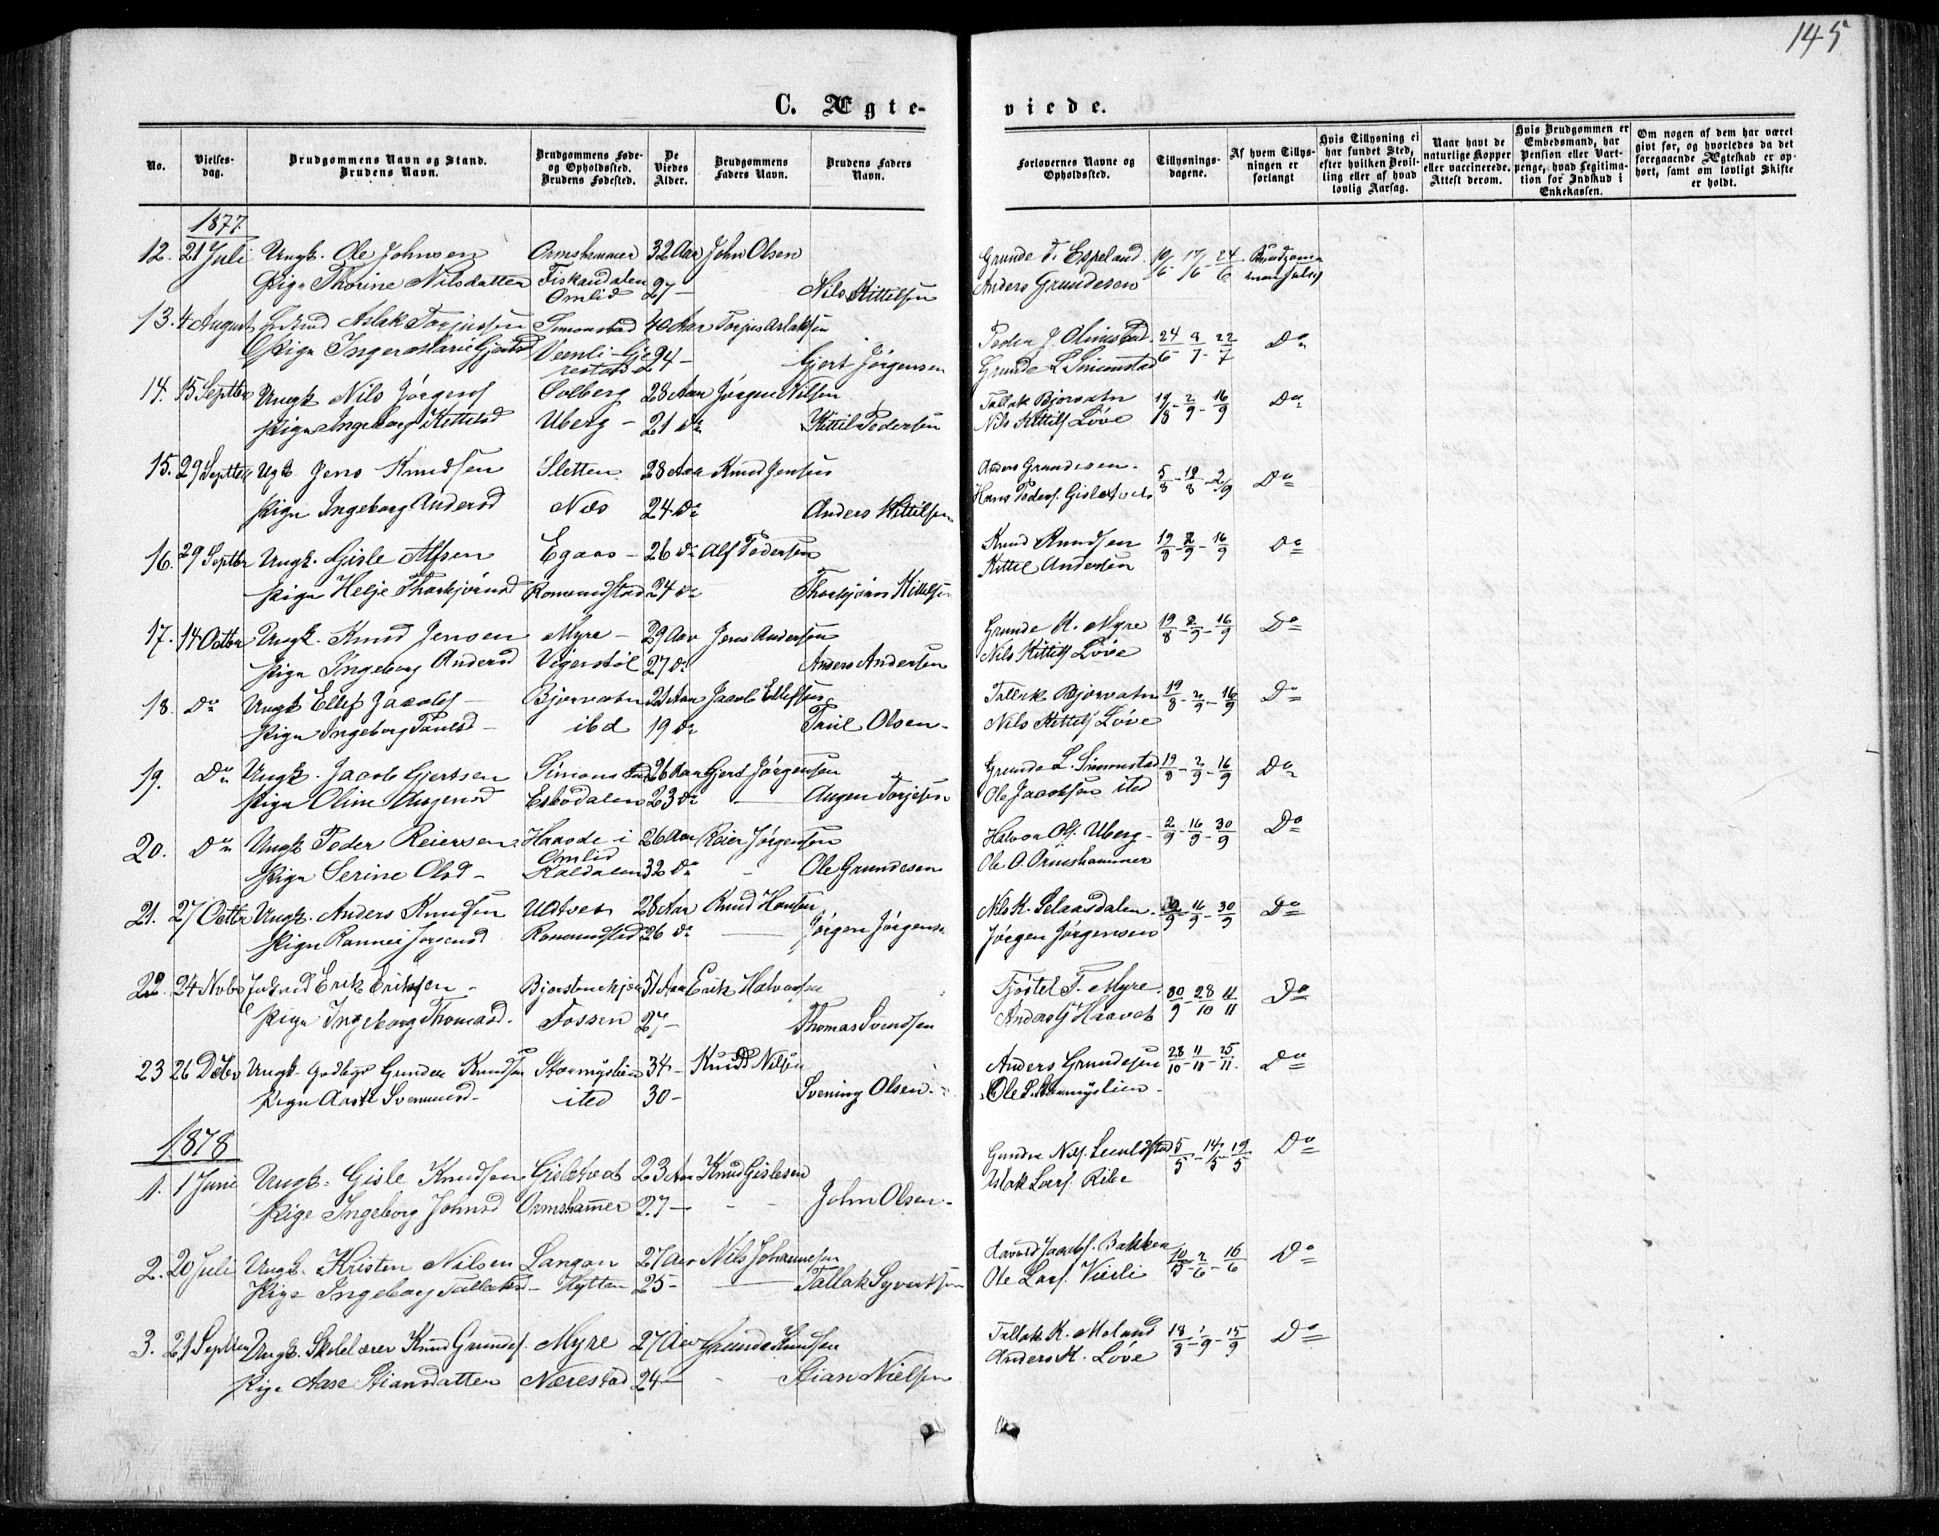 145
C. Ægte-
viede.
No.
Vielses-dag.
Brudgommens Navn og Stand. Brudens Navn.
Brudgommens Føde- og Opholdssted. Brudens Fødested.
De Viedes Alder.
Brudgommens Faders Navn.
Brudens Faders Navn.
Forlovernes Navne og Opholdssted.
Tillysnings-dagene.
Af hvem Tillysningen er forlangt
Hvis Tillysning ei har fundet Sted, efter hvilken Bevilling eller af hvad lovlig Aarsag.
Naar havt de naturlige Kopper eller vaccinerede. Attest derom.
Hvis Brudgommen er Embedsmand, har Pension eller Vartpenge, hvad Legitimation for Indskud i Enkekassen.
Om nogen af dem har været givt før, og hvorledes da det foregaaende Ægteskab er ophørt, samt om lovligt Skifte er holdt.
1877
12. 21 Juli Ungk. Ole Johnsen Ormshammer 32 Aar John Olsen Grunde T. Espeland 10/6 - 17/6 - 24/6
Pige Thorine Nilsdatter Fiskaadalen Omlid 27 — Nils Kittilsen Anders Grundesen
13. 4 August Aslak Torjussen Simonstad 40 Aar Torjus Aslaksen 24/6 22/7 Do
Pige Inger Marie 24 — Gjert Jørgensen Grunde L. Simonstad
14. 15 Septbr Ungk Nils Jørgens Solberg 28 Aar Jørgen Nilsen Tallak Bjorvatn 19/8 - 2/9 - 16/9 Do
Pige Ingeborg Kittilsd Uberg — 21 Do Kittil Pedersen Nils Kittils Løve
15. 29 Septbr Ugk Jens Knudsen Sletten 28 Aar Knud Jensen Anders Grundesen. 5/8 - 19/8 - 2/9 Do
Pige Ingeborg Andersd Næs 24 Do Anders Kittilsen Hans Peders. Gisletveit
16. 29 Septbr Ungk. Gisle Alfsen Egaas — 26 Do Alf Pedersen Knud Knudsen 19/8 - 2/9 - 16/9 Do
Pige Helje Thorbjørnsd Romundstad 24 Do Thorbjørn Kittilsen Kittil Andersen
17. 14 Octbr Ungk. Knud Jensen Myre — 29 Aar Jens Andersen Grunde K. Myre 19/8 - 2/9 - 16/9 Do
Pige Ingeborg Andersd Vigerstøl 27 Do Anders Andersen Nils Kittils Løve
18. Do Ungk Ellef Jacobs — Bjorvatn 21 Aar Jacob Ellefsen Tallak Bjorvatn 19/8 - 2/9 - 16/9 Do
Pige Ingeborg Paulsd — ibd 19 Do Paul Olsen — Nils Kittils Løve
19. Do Ungk. Jacob Gjertsen Simonstad 26 Aar Gjert Jørgensen Grunde L. Simonstad 19/8 - 2/9 - 16/9 Do
Pige Oline Augensd Esbødalen 23 Do — Augen Torjesen Ole Jacobsen sted
20. Do Ungk Peder Reiersen Haavde i Omlid 26 Aar Reier Jørgensen Halvor Ols. Uberg — 2/9 - 16/9 - 30/9 Do
Pige Serine Olsd — Kaldalen 32 Do — Ole Grundesen Ole O. Ormshammer
21. 27 Octbr Ungk. Anders Knudsen Udtveit 28 Aar Knud Hansen Nils K. Selaasdalen. 16/9 - 30/9 Do
Pige Rannei Jørgensd Romundstad 26 Do — Jørgen Jørgensen Jørgen Jørgensen
22. 24 Novbr Erik Eriksen — 51 Aar Erik Halvorsen Tjøstel T. Myre. 30/9 - 28/10 11/11 Do
Pige Ingeborg Thomasd. Fossen 27 — Thomas Svendsen Anders G Haavet
23 26 Debr Ungk. Gunder Knudsen Stormyrlien 34 — Knud Nilsen Anders Grundesen 28/10 - 11/11 - 25/11 Do
Pige Svenningsd — sted 30 — Svening Olsen — Ole S. Stormyrlien —
1878
1. 1 Juni Ungk. Gisle Knudsen Gisletvet 23 Aar Knud Gislesen 5/5 - 14/5 - 19/5 Do
Pige Ingeborg Johnsd Ormshammer 27 — — John Olsen — Aslak Lars. Ribe
2. 20 Juli Ungk. Kristen Nilsen Langan 27 Aar Nils Johannesen Jacobs. Bakken 2/6 - 16/6 Do
Pige Ingeborg Tallaksd — Hytten 25 — — Tallak Syvertsen Ole Lars. Vierli
3. 21 Septbr Ungk. Skolelærer Knud Grundes. Myre 27 Aar Grunde Knudsen Tallak K. Moland 18/8 1/9 - 15/9 Do
Pige Aase Stiansdatter Nærestad 24 — Stian Nielsen Anders K. Løve